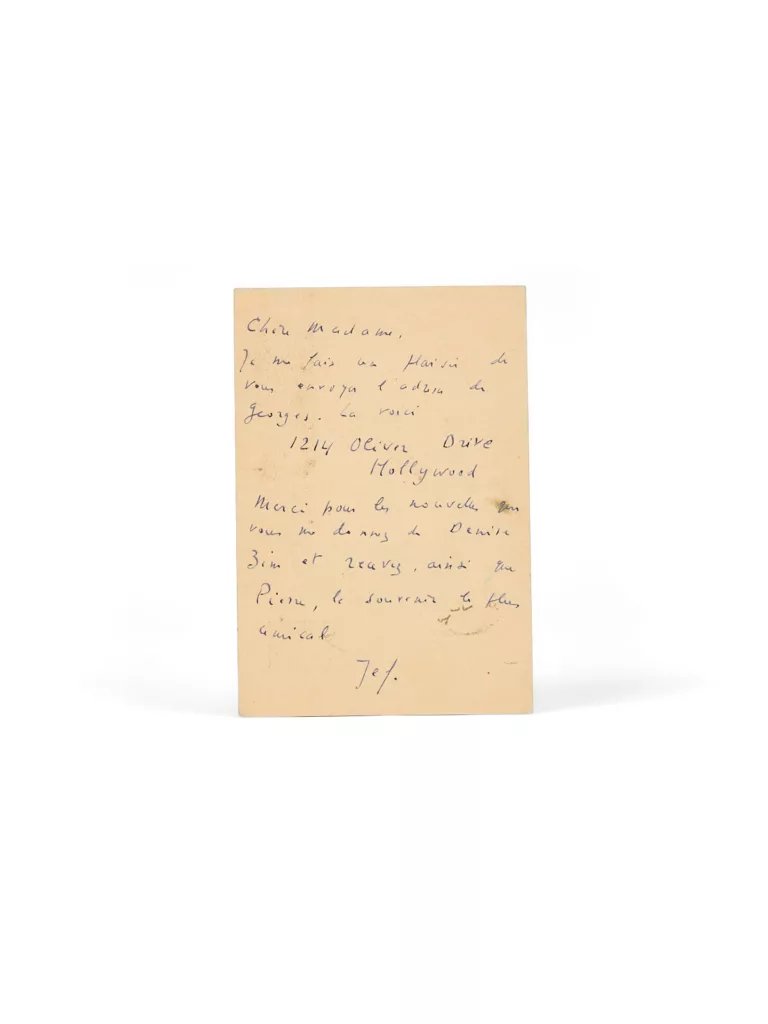 Chère Madame,
Je me fais un plaisir de
vous envoyer l'adresse de
Georges. La voici
1214 Oliver Drive
Hollywood
Merci pour les nouvelles que
vous me donnez de Denise
et recevez, ainsi que
Pierre, le souvenir le plus
amical
Jef.